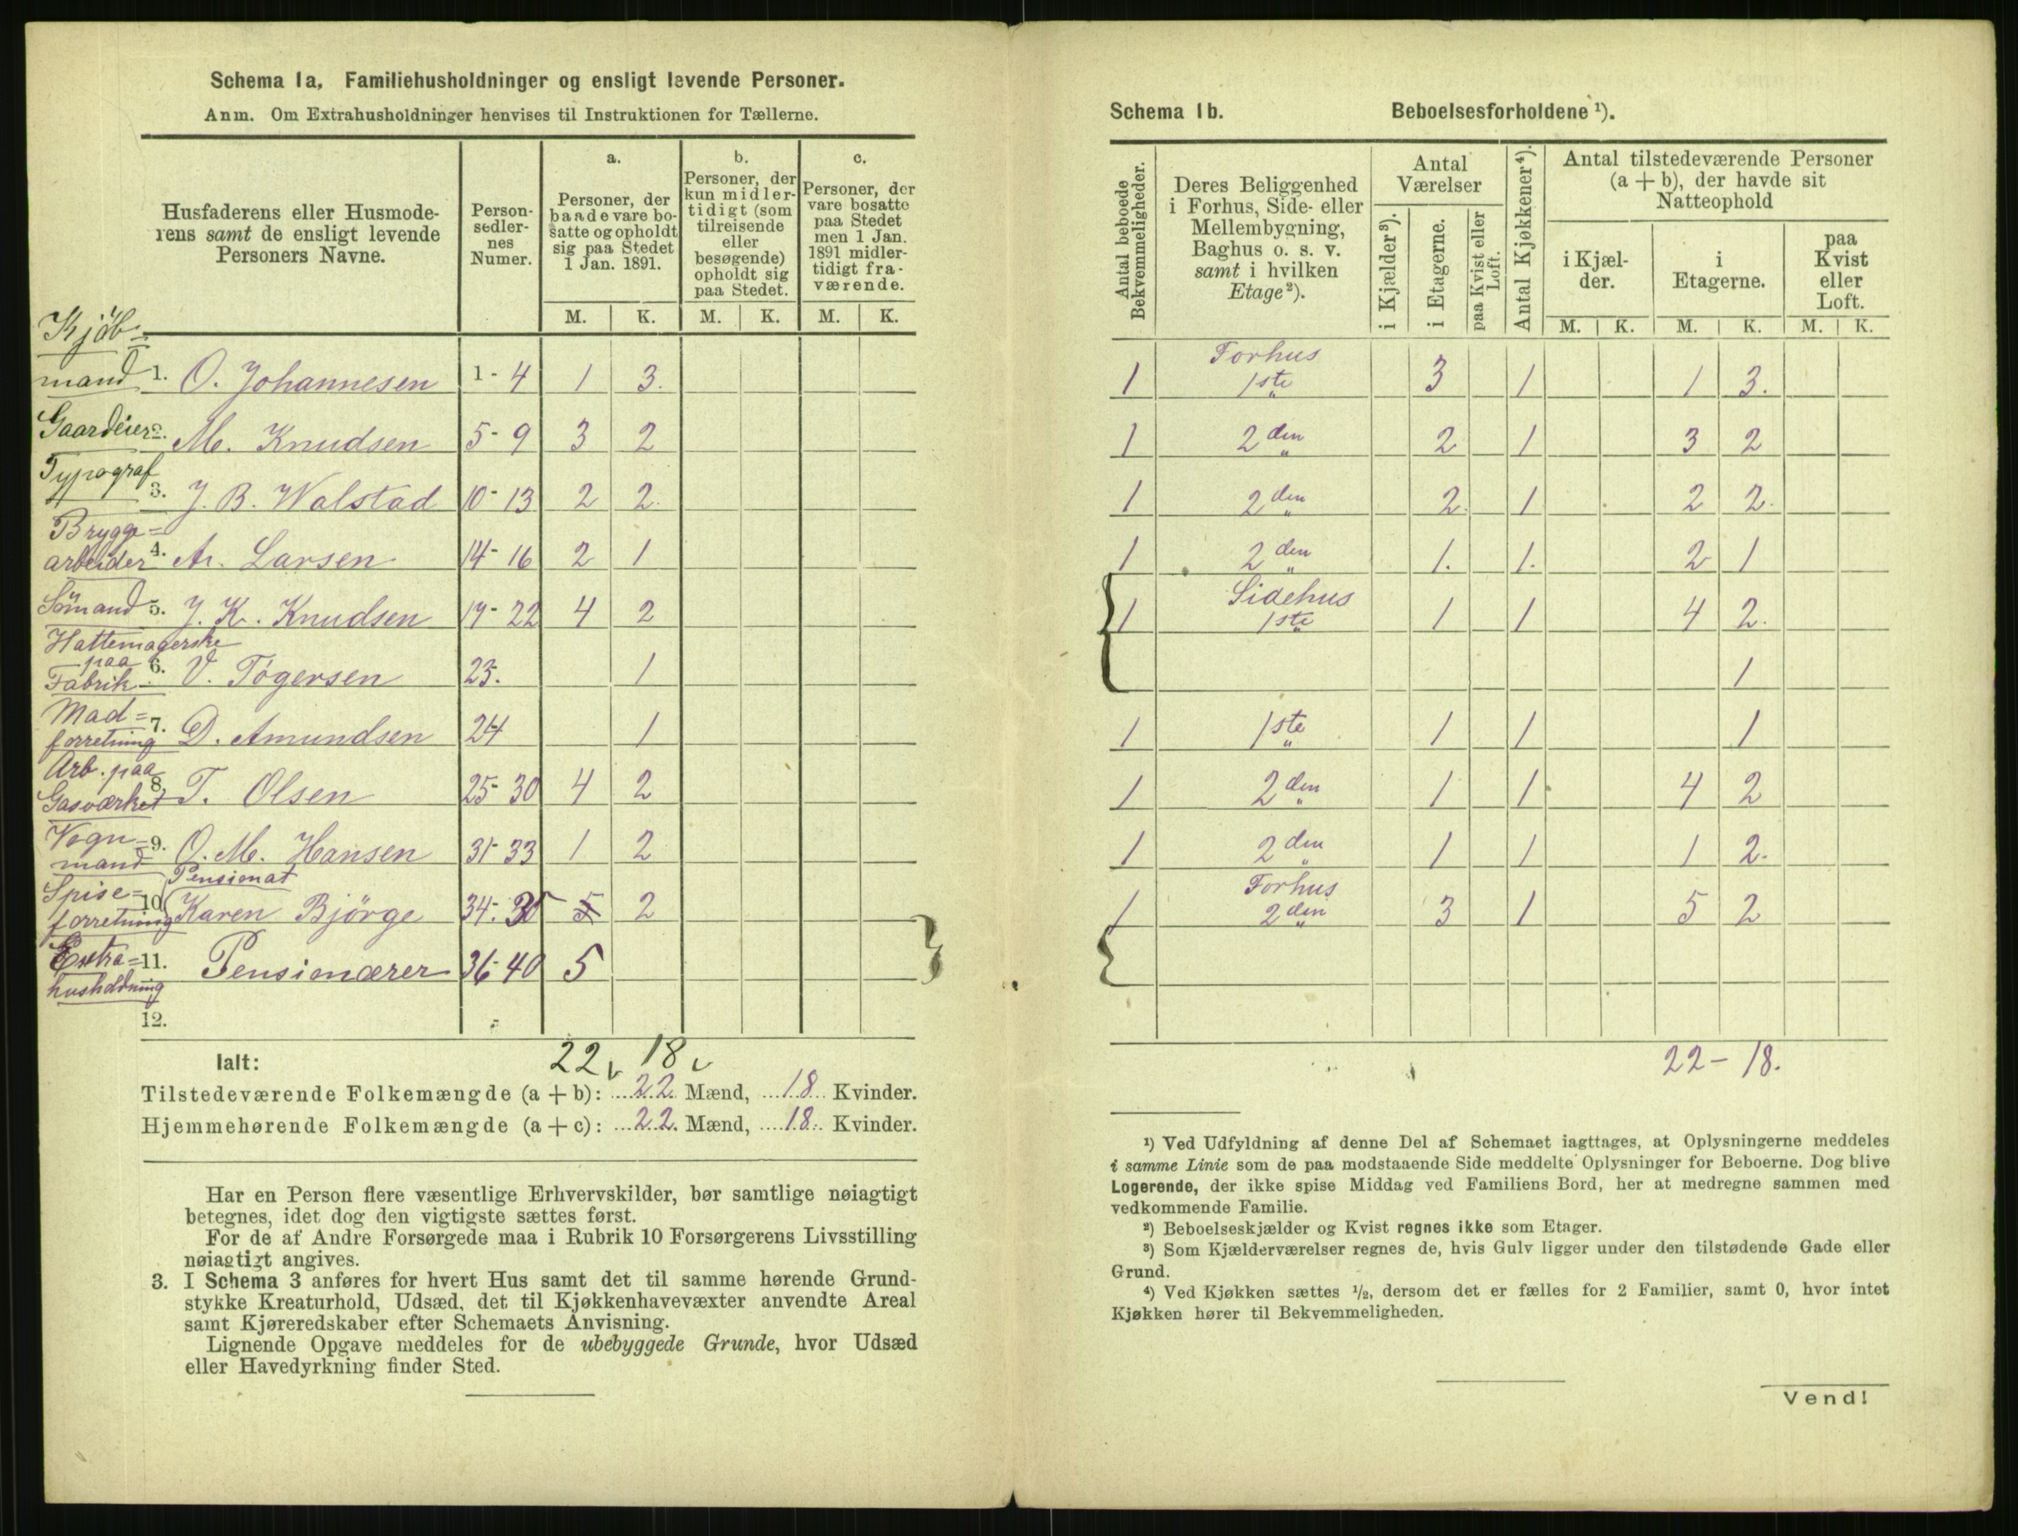 Schema 1a. Familiehusholdninger og ensligt levende Personer.
Anm. Om Extrahusholdninger henvises til Instruktionen for Tællerne.
Husfaderens eller Husmoderens samt de ensligt levende Personers Navne.
Personsedlernes Numer.
a. Personer, der baade vare bosatte og opholdt sig paa Stedet 1 Jan. 1891.
b. Personer, der kun midlertidigt (som tilreisende eller besøgende) opholdt sig paa Stedet.
c. Personer, der vare bosatte paa Stedet men 1 Jan. 1891 midlertidigt fraværende.
M. K. M. K. M. K.
Kjöbmand 1. O. Johannesen 1-4 1 3.
Gaardeier 2. M. Knudsen 5-9 3 2
Typograf 3. J. B. Walstad 10-13 2 2.
Bryggearbeider 4. A. Larsen 14-16 2 1
Sömand 5. J. K. Knudsen 17-22 4 2
Hattemagerske paa Fabrik 6. V. Togersen 23. 1
Madforretning 7. D. Amundsen 24 1
Arb. paa Gasværket 8. T. Olsen 25-30 4 2
Vognmand 9. O. M. Hansen 31-33 1 2
Pensionat
Spiseforretning 10. Karen Bjørge 34-35 5 2
Extrahusholdning 11. Pensionærer 36-40 5
12.
Ialt: 22 18
Tilstedeværende Folkemængde (a + b): 22 Mænd, 18 Kvinder.
Hjemmehørende Folkemængde (a + c): 22. Mænd, 18. Kvinder.
Har en Person flere væsentlige Erhvervskilder, bør samtlige nøiagtigt
betegnes, idet dog den vigtigste sættes først.
For de af Andre Forsørgede maa i Rubrik 10 Forsørgerens Livsstilling
nøiagtigt angives.
3. I Schema 3 anføres for hvert Hus samt det til samme hørende Grund-
stykke Kreaturhold, Udsæd, det til Kjøkkenhavevæxter anvendte Areal
samt Kjøreredskaber efter Schemaets Anvisning.
Lignende Opgave meddeles for de ubebyggede Grunde, hvor Udsæd
eller Havedyrkning finder Sted.
Schema 1b. Beboelsesforholdene ¹).
Antal beboede Bekvemmeligheder.
Deres Beliggenhed i Forhus, Side- eller Mellembygning, Baghus o. s. v. samt i hvilken Etage²).
Antal Værelser
i Kjælder³).
i Etagerne.
paa Kvist eller Loft.
Antal Kjøkkener⁴).
Antal tilstedeværende Personer (a + b), der havde sit Natteophold
i Kjælder.
i Etagerne.
paa Kvist eller Loft.
M. K. M. K. M. K.
1 Forhus 1ste 3 1 1 3.
1 2den 2 1 3 2
1 2den 2. 1 2 2.
1 2den 1. 1. 2 1
1 Sidehus 1ste 1 1 4 2.
1
1 1ste 1 1 1
1 2den 1 1 4 2
1 2den 1 1 1 2.
1 Forhus 2den 3 1 5 2
22-18.
¹) Ved Udfyldning af denne Del af Schemaet iagttages, at Oplysningerne meddeles
i samme Linie som de paa modstaaende Side meddelte Oplysninger for Beboerne. Dog blive
Logerende, der ikke spise Middag ved Familiens Bord, her at medregne sammen med
vedkommende Familie.
²) Beboelseskjælder og Kvist regnes ikke som Etager.
³) Som Kjælderværelser regnes de, hvis Gulv ligger under den tilstødende Gade eller
Grund.
⁴) Ved Kjøkken sættes ½, dersom det er fælles for 2 Familier, samt 0, hvor intet
Kjøkken hører til Bekvemmeligheden.
Vend!